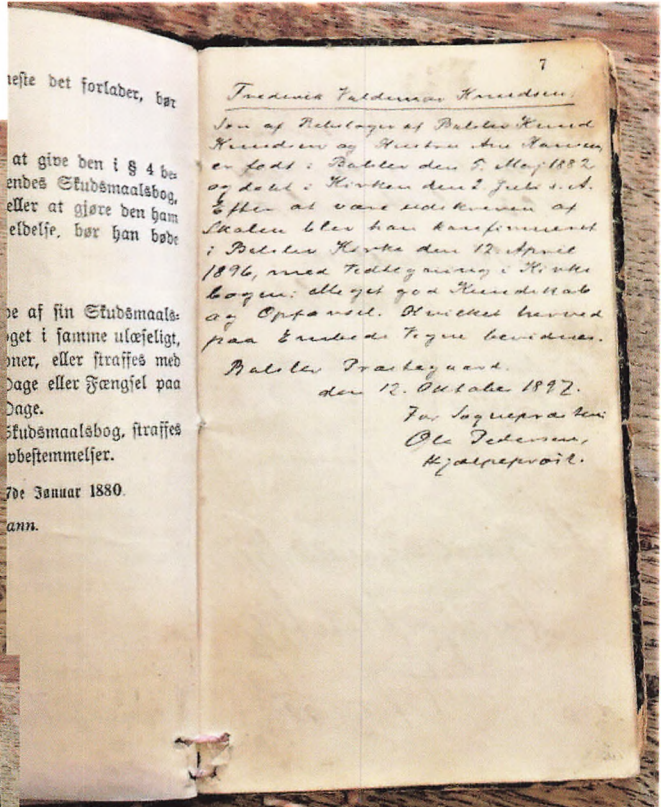 neste det forlader, bør
at give den i § 4 be-
endes Skudsmaalsbog,
eller at gjøre den ham
eldelse, bør han bøde
oe af sin Skudsmaals-
oget i samme ulæseligt,
oner, eller straffes med
Dage eller Fængsel paa
Dage.
Skudsmaalsbog, straffes
vbestemmelser.
7de Januar 1880.
ann.
7
Frederik Valdemar Knudsen,
Søn af Rebslager af Balslev Knud
Knudsen og Hustru Ane Hansen,
er født i Balslev den 5. Maj 1882
og døbt i Kirken den 2 Juli s. A.
Efter at være udskreven af
Skolen blev han konfirmeret
i Balslev Kirke den 12. April
1896, med Vedtegning i Kirke
bogen: Meget god Kundskab
og Opførsel. Hvilket herved
paa Embeds Vegne bevidnes.
Balslev Præstegaard.
den 12. Oktober 1897.
For Sognepræsten
Ole Pedersen,
Hjælpepræst.